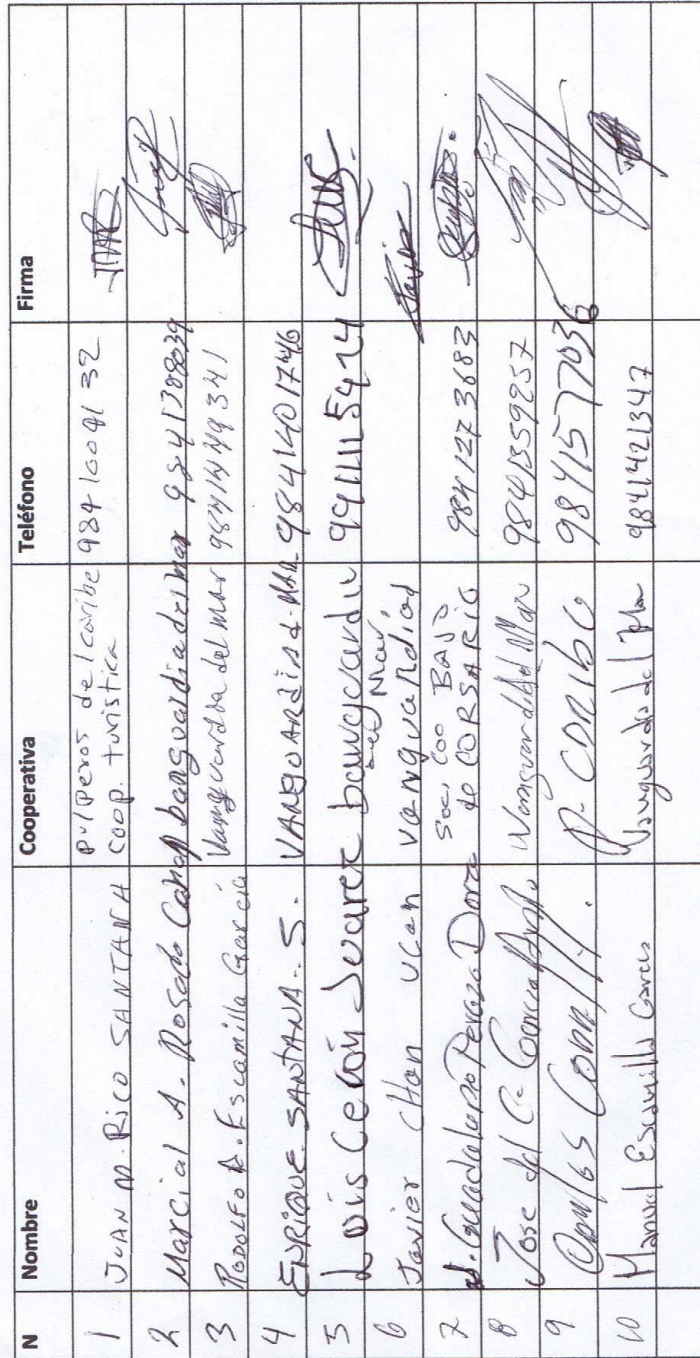 N Nombre Cooperativa Teléfono Firma
1 JUAN M. RICO SANTANA Pulperos del caribe coop. turistica 984 1009132
2 Marcial A. Rosado Canop banguardiadelmar 9841388039
3 RODOLFO A. Escamilla García Vanguardia del mar 9841449341
4 ENRIQUE SANTANA S. VANGUARDIA d. MAR 9841401746
5 Luis Cerón Juarez banguardia del Mar
6 Javier Chan Ucan vanguardia
7 Guadalupe Peraza Dorz Soc. Coo BAJO de CORSARIO 984 127 3683
8 Jose del C. Garcia Vanguardia del Mar 9841359257
9 Carlos P. CARIBE 9841577036
10 Manuel Escamilla Garcia Vanguardia del Mar 9841421347